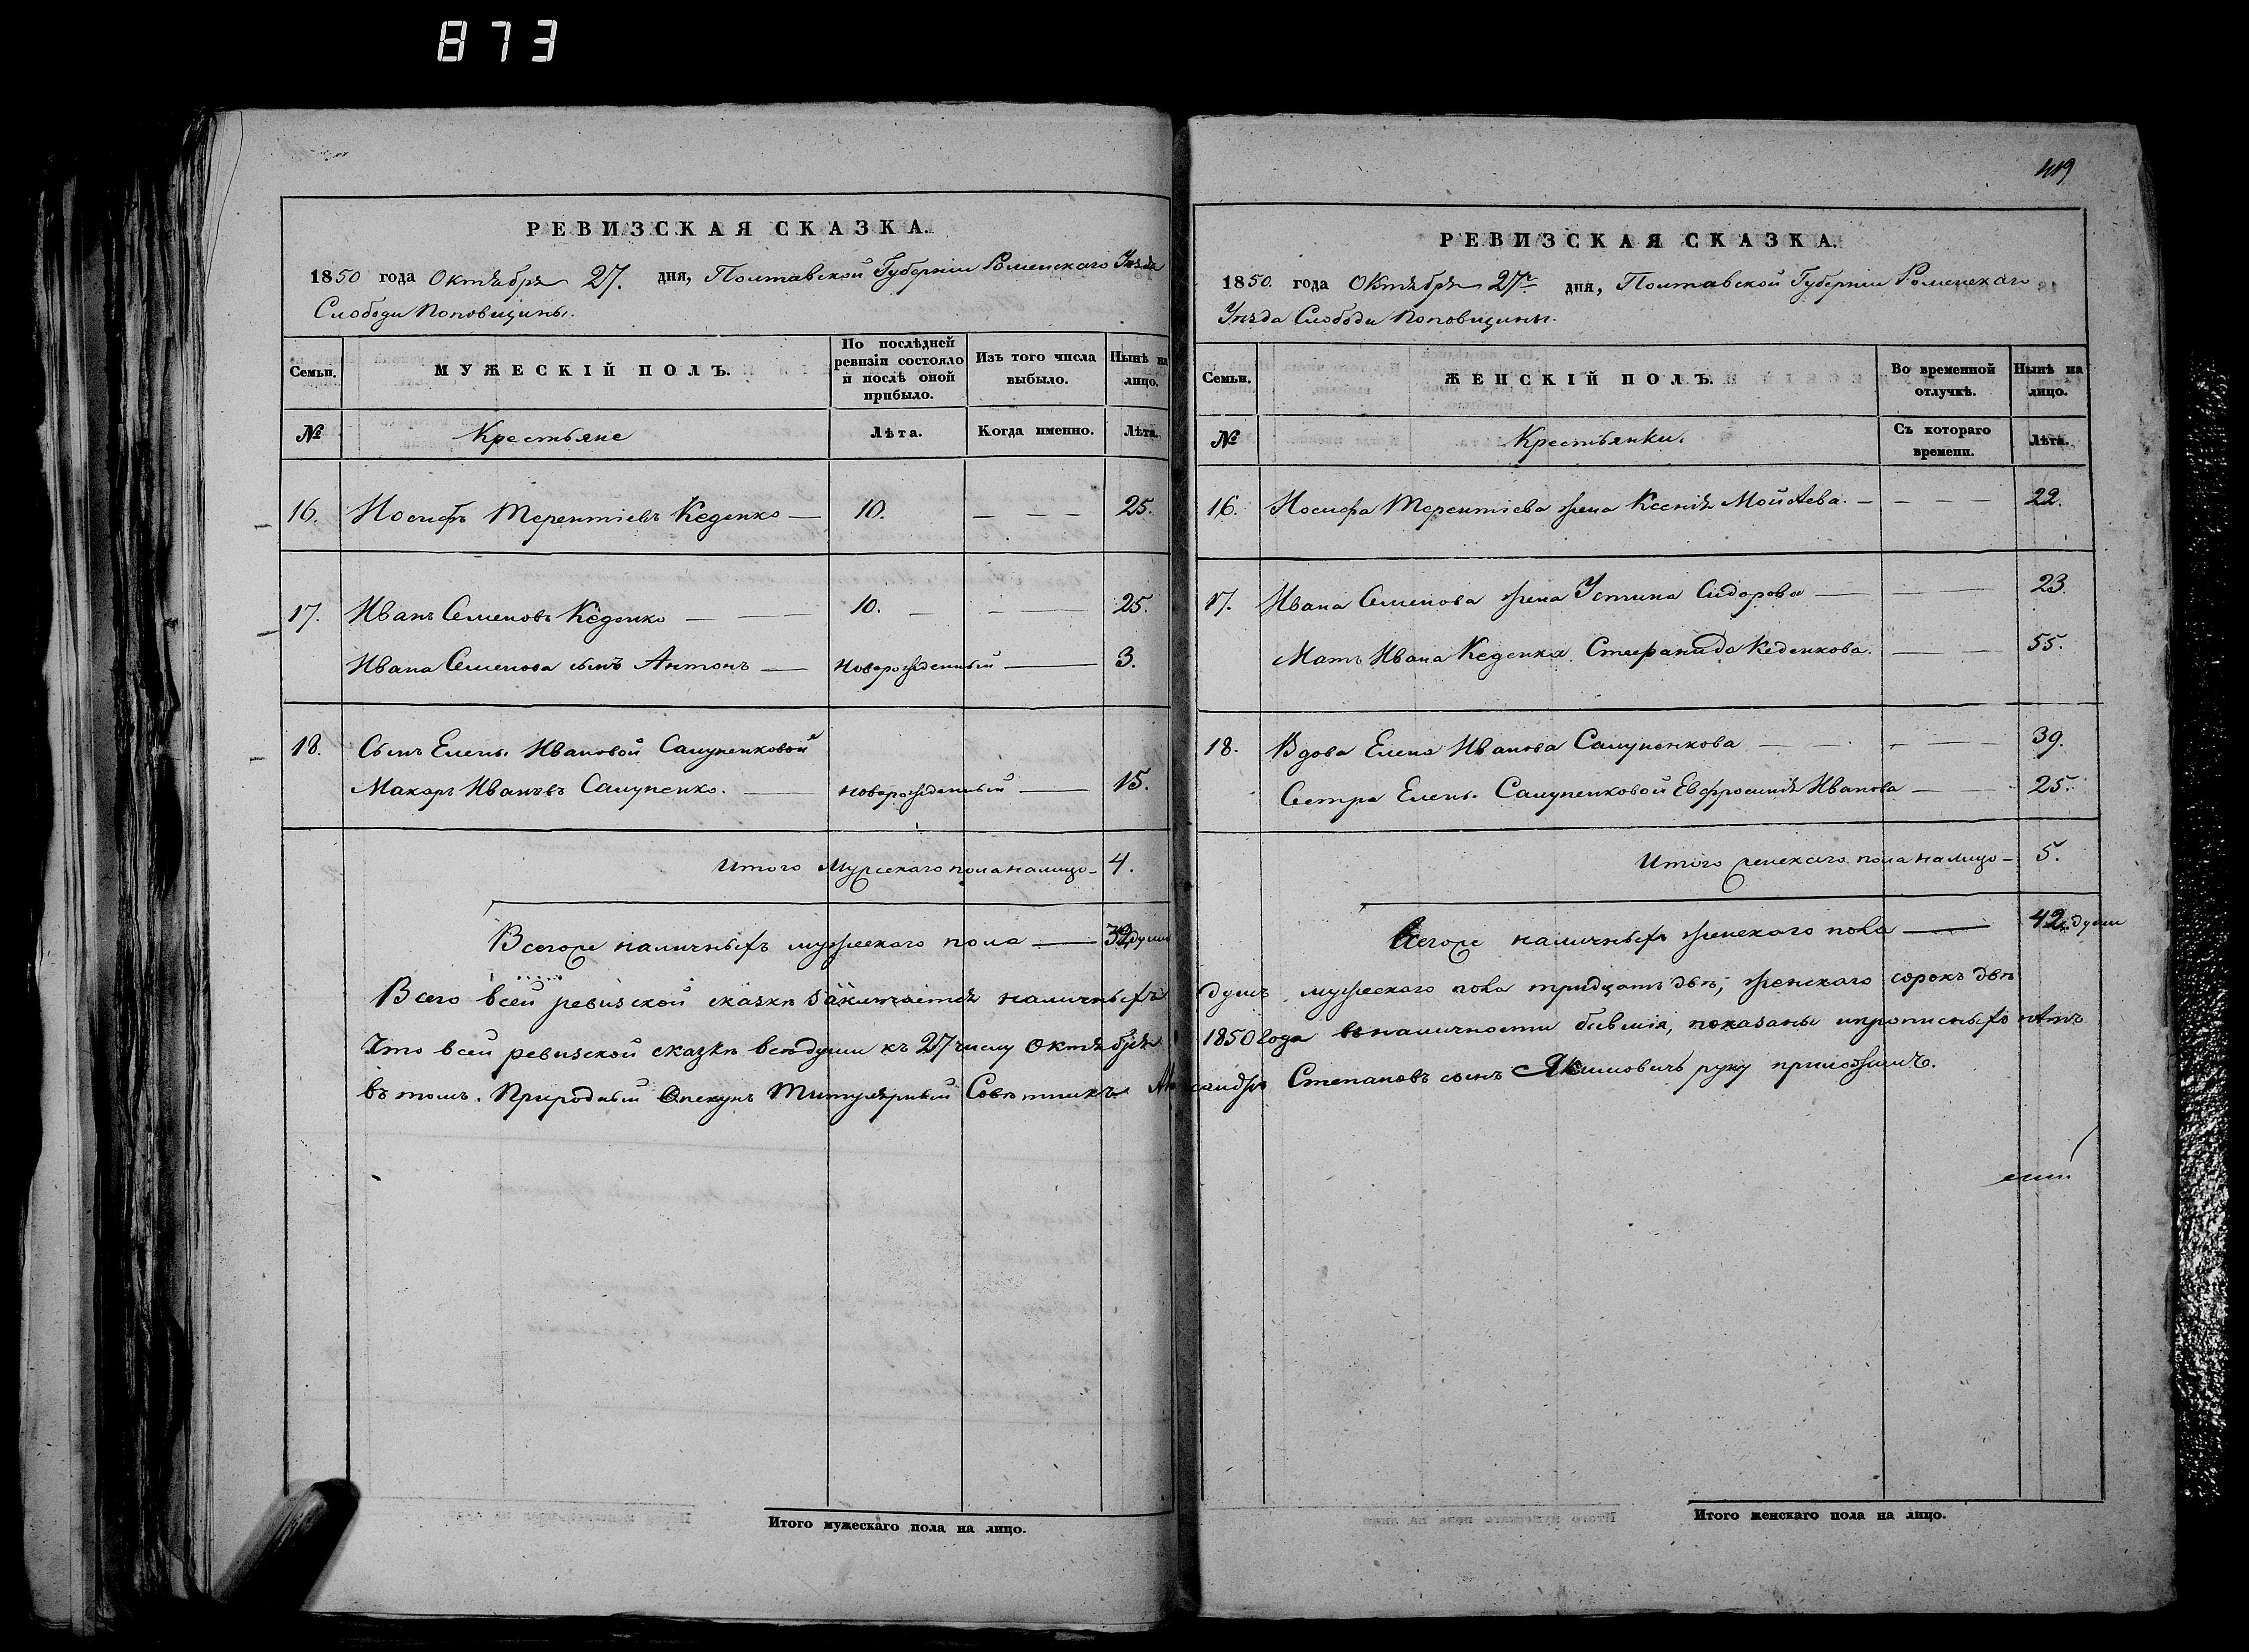 873
РЕВИЗСКАЯ СКАЗКА.
1850 года Октября 27. дня, Полтавской Губерніи Роменскаго Уѣзда
Слободи Поповщины.
Семьи.
МУЖЕСКІЙ ПОЛЪ.
По послѣдней ревизіи состояло и послѣ оной прибыло.
Изъ того числа выбыло.
Нынѣ на лицо.
№
Крестьяне
Лѣта.
Когда именно.
Лѣта.
16. Иосифъ Терентіевъ Кеденко — 10. — — — 25.
17. Иванъ Семеновъ Кеденко — — 10. — — 25.
Ивана Семенова сынъ Антонъ — Новорожденный — 3.
18. Сынъ Елены Ивановой Сапуненковой
Макаръ Ивановъ Сапуненко. — новорожденный — 15.
Итого Мужескаго пола налицо — 4.
Всегоже наличныхъ мужескаго пола — 32 души
Всего всей ревизской сказкѣ заключается наличныхъ
Что всей ревизской сказкѣ всѣ души къ 27 числу Октября
въ томъ. Природный Опекунъ Титулярный Совѣтникъ Александръ
Итого мужескаго пола на лицо.
419
РЕВИЗСКАЯ СКАЗКА.
1850. года Октября 27. дня, Полтавской Губерніи Роменскаго
Уѣзда Слободи Поповщины.
Семьи.
ЖЕНСКІЙ ПОЛЪ.
Во временной отлучкѣ.
Нынѣ на лицо.
№
Крестьянки.
Съ котораго времени.
Лѣта.
16. Иосифа Терентіева жена Ксенія Мойсѣева. — — — — 22.
17. Ивана Семенова жена Устина Сидорова — — — 23.
Мать Ивана Кеденка Стефанида Кеденкова. — — 55.
18. Вдова Елена Иванова Сапуненкова — — — — 39.
Сестра Елены Сапуненковой Евфросинія Иванова — — 25.
Итого женскаго пола налицо — 5.
Всегоже наличныхъ женскаго пола — 42. души
душъ мужескаго пола тридцать двѣ, женскаго сорокъ двѣ
1850 года въ наличности бывшія, показаны
Степановъ сынъ Якимовичъ руку приложилъ.
Итого женскаго пола на лицо.